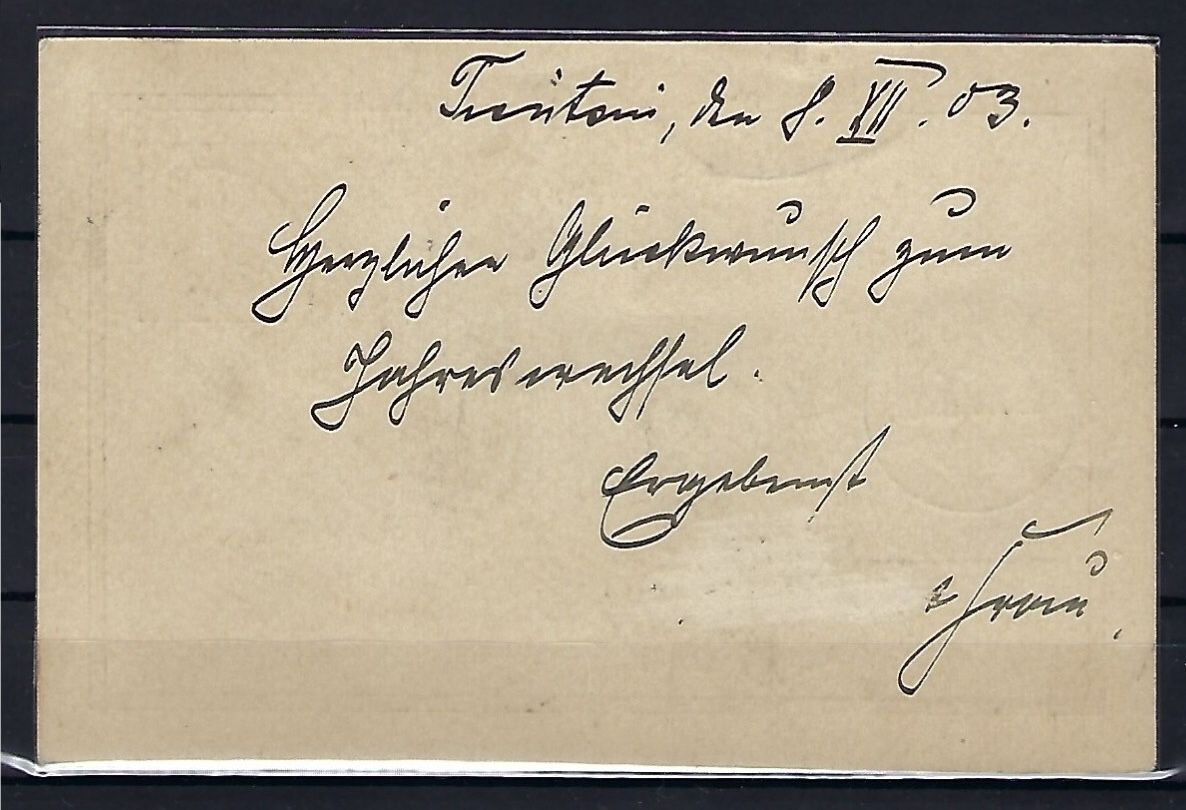 Tientsin, den 8. XII. 03.
Herzlichen Glückwunsch zum
Jahreswechsel.
Ergebenst
Frau.